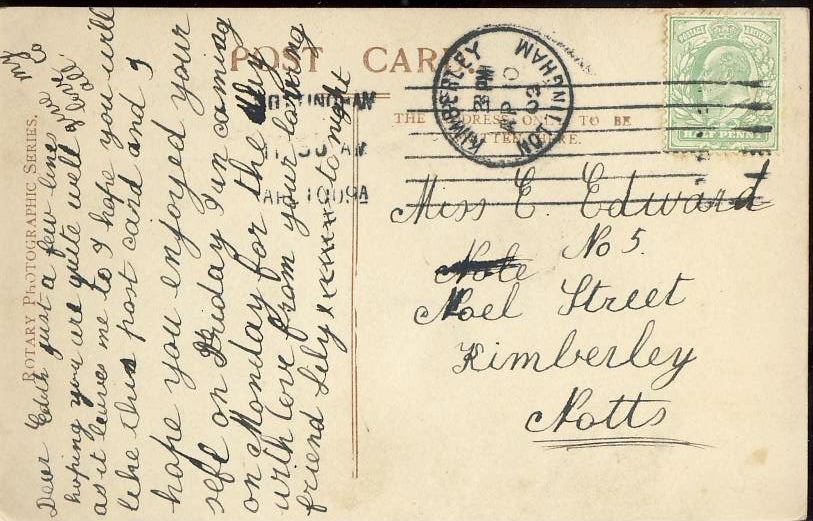 POST CARD.
THE ADDRESS ONLY TO BE
WRITTEN HERE.
ROTARY PHOTOGRAPHIC SERIES.
KIMBERLEY
NOTTINGHAM
3 PM
AP 10
09
NOTTINGHAM
11.30 AM
APR 10 09A
POSTAGE
HALF PENNY
Miss E. Edward
No 5.
Noel Street
Kimberley
Notts
Dear Edith just a few lines
hoping you are quite well
as it leaves me to I hope you will
like this post card and I
hope you enjoyed your
self on Friday I'm coming
on Monday for the
with love from your loving
friend Lily xxxxxx to night